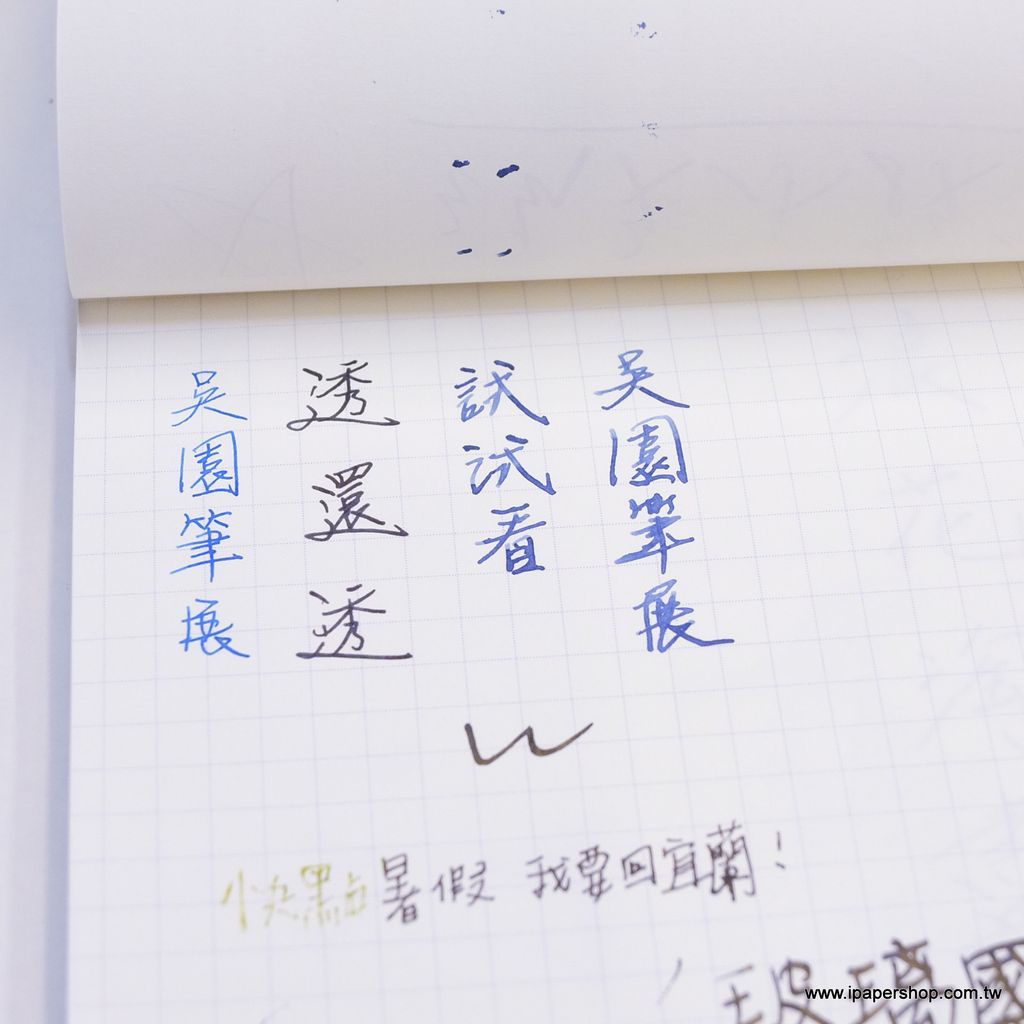 吳園筆展
試試看
透還透
吳園筆展
快點暑假 我要回宜蘭！
玻璃國
www.ipapershop.com.tw